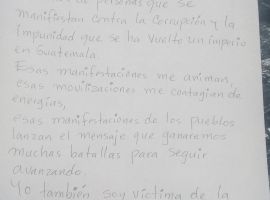 de personas que se
manifiestan contra la Corrupción y la
Impunidad que se ha vuelto un imperio
en Guatemala.
Esas manifestaciones me animan,
esas movilizaciones me contagian de
energías,
esas manifestaciones de los pueblos
lanzan el mensaje que ganaremos
muchas batallas para seguir
avanzando.
Yo también soy víctima de la